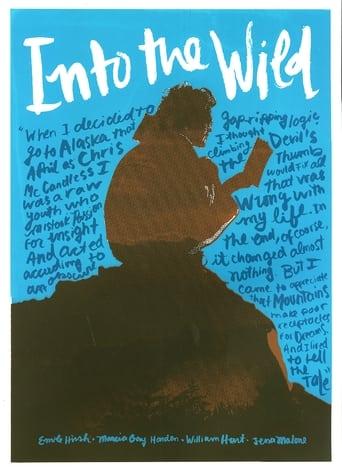 Into the Wild
"When I decided to
go to Alaska that
April as Chris
McCandless I
was a raw
youth who
mistook Passion
For Insight
And acted
according to
an obscure
gap-ripping logic.
I thought
climbing
the
Devil's
Thumb
would fix all
that was
Wrong with
my life. In
the end, of course,
it changed almost
nothing. But I
came to appreciate
that Mountains
make poor
receptacles
For Dreams.
And I lived
to tell
the
Tale"
Emile Hirsh · Marcia Gay Harden · William Hurt · Jena Malone